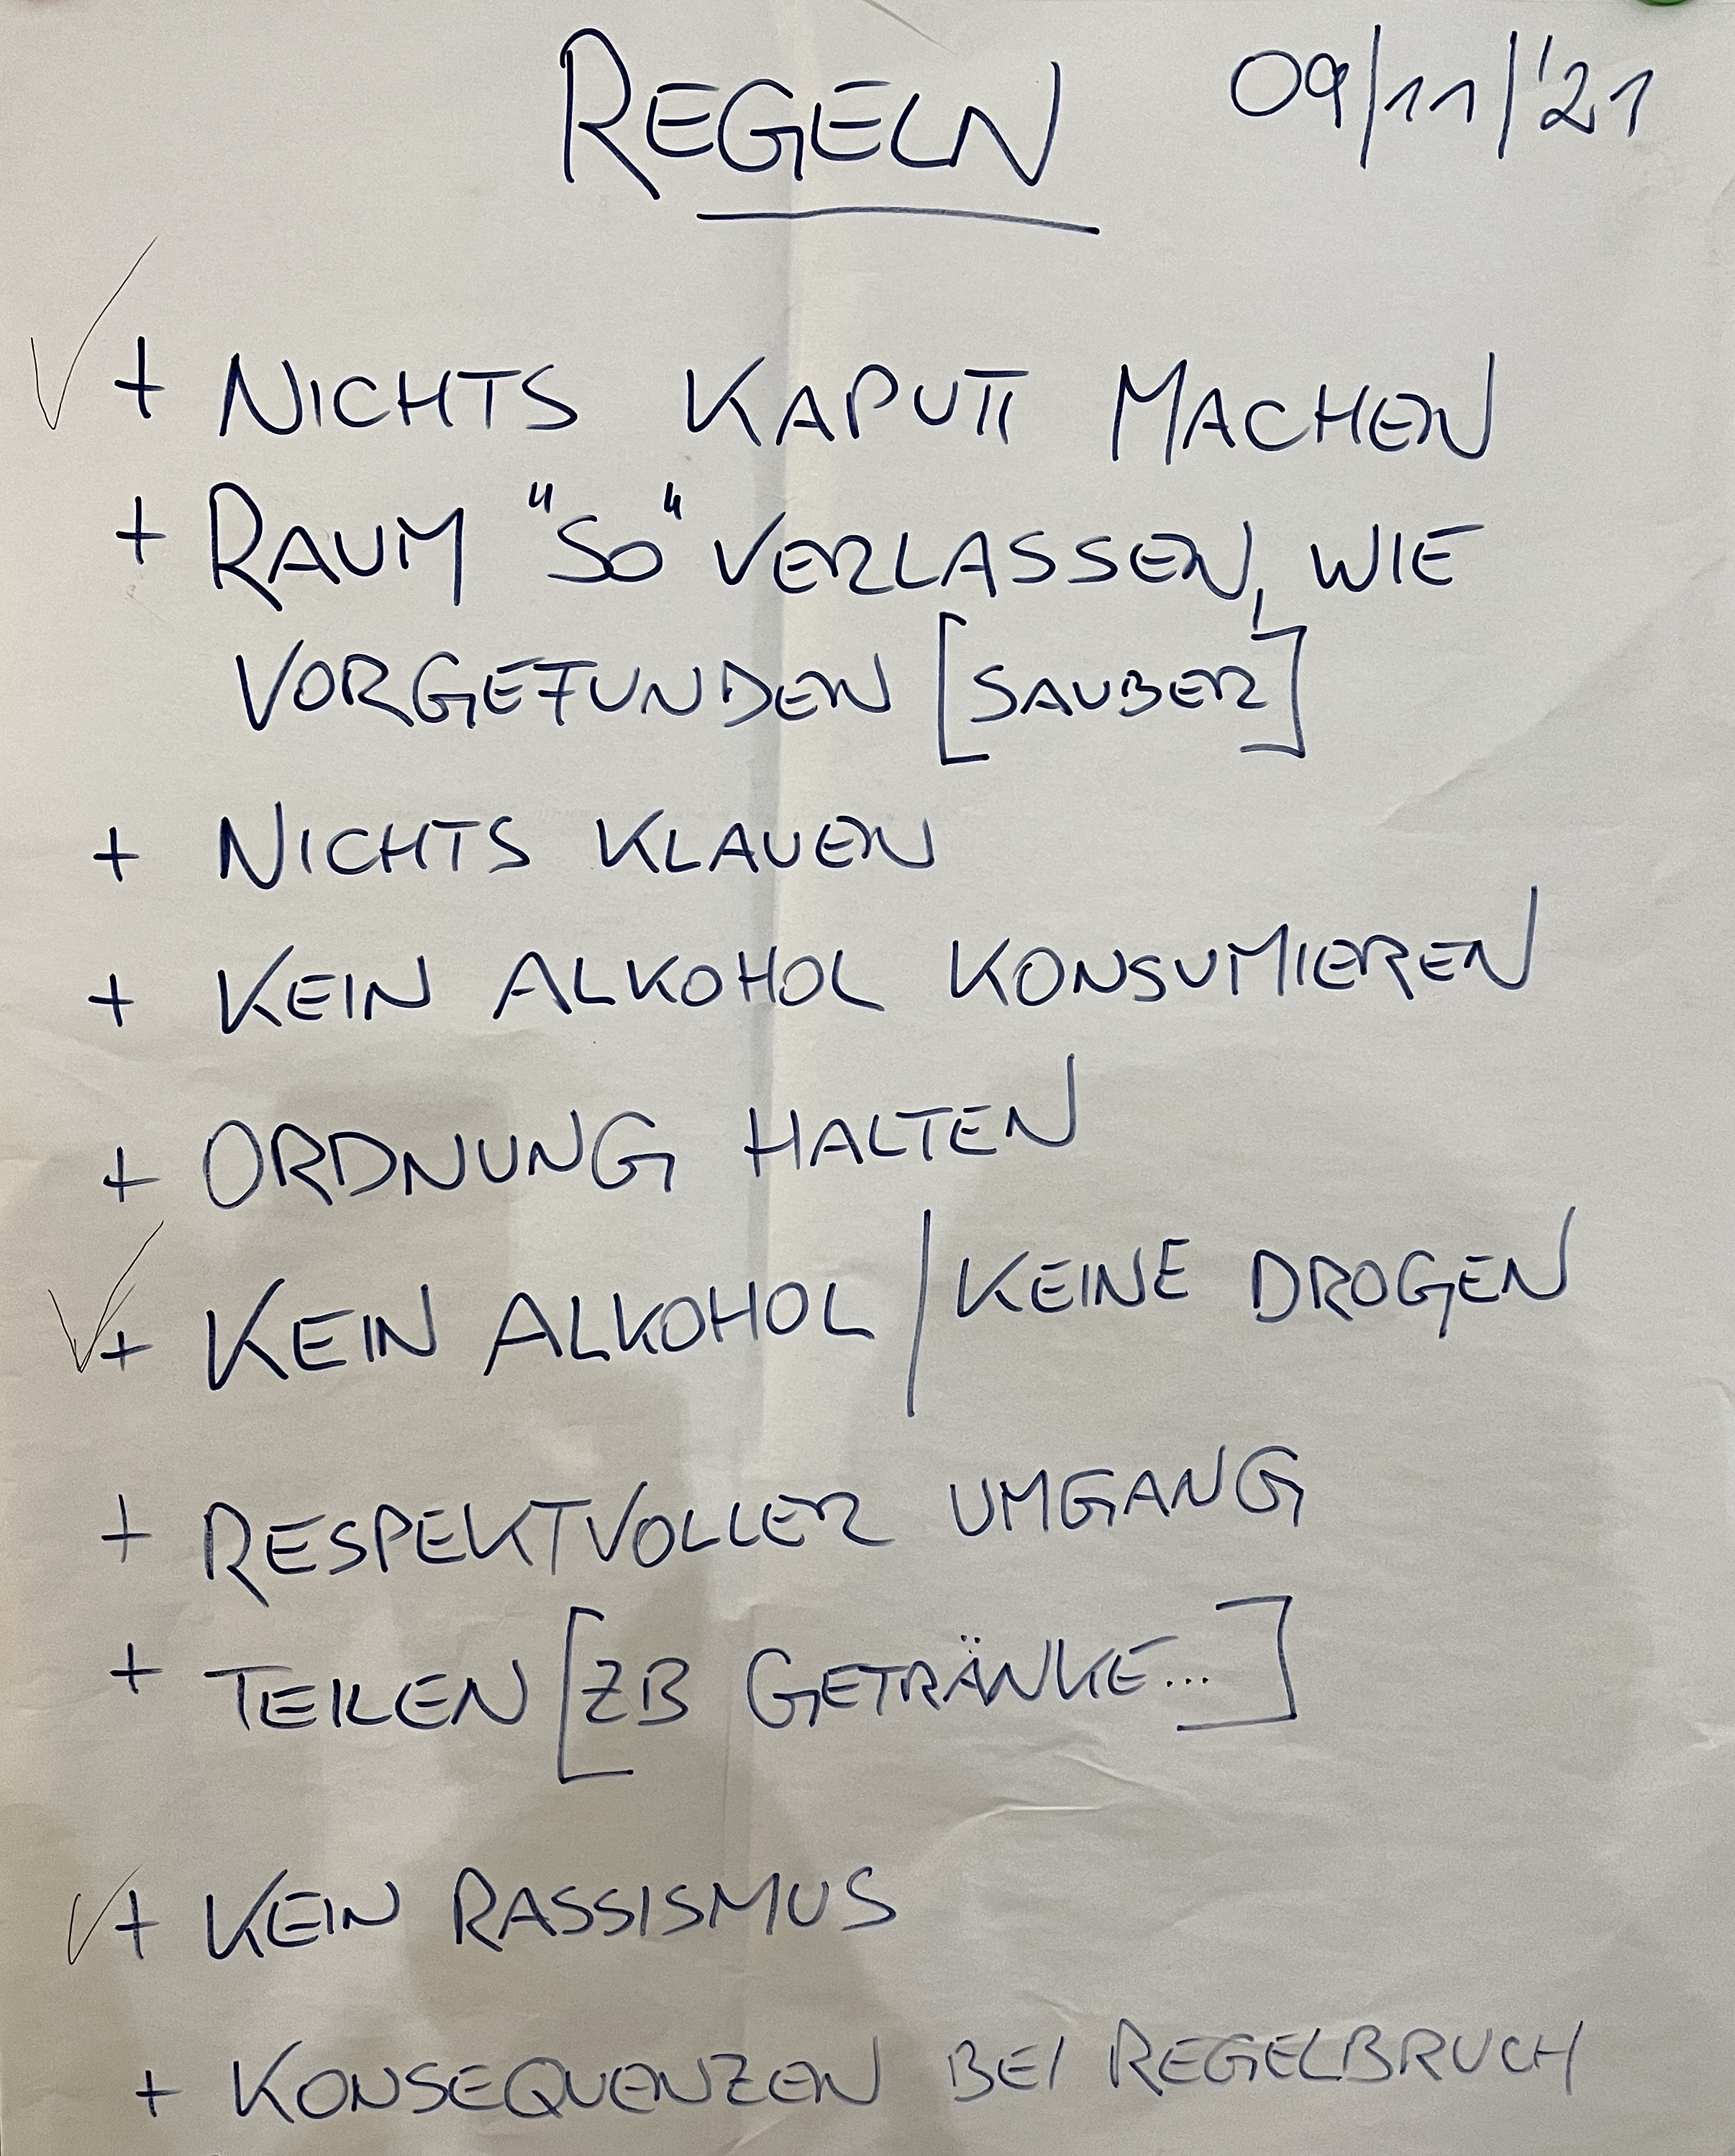 REGELN 09/11/'21
+ NICHTS KAPUTT MACHEN
+ RAUM "SO" VERLASSEN, WIE
VORGEFUNDEN [SAUBER]
+ NICHTS KLAUEN
+ KEIN ALKOHOL KONSUMIEREN
+ ORDNUNG HALTEN
+ KEIN ALKOHOL / KEINE DROGEN
+ RESPEKTVOLLER UMGANG
+ TEILEN [ZB GETRÄNKE...]
+ KEIN RASSISMUS
+ KONSEQUENZEN BEI REGELBRUCH